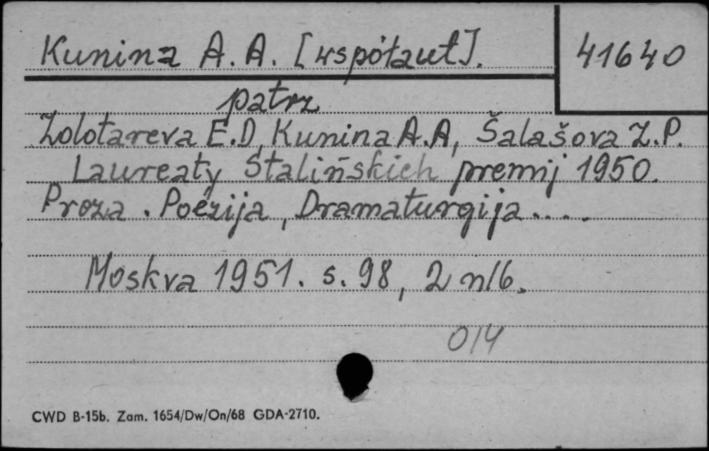 Kunina A. A. [współaut].
41640
patrz
Zolotareva E.D, Kunina A.A, Šalašova Z.P.
Laureaty Stalińskich premij 1950.
Proza. Poėzija, Dramaturgija....
Moskva 1951. s. 98, 2 nlb.
014
CWD B-15b. Zam. 1654/Dw/On/68 GDA-2710.